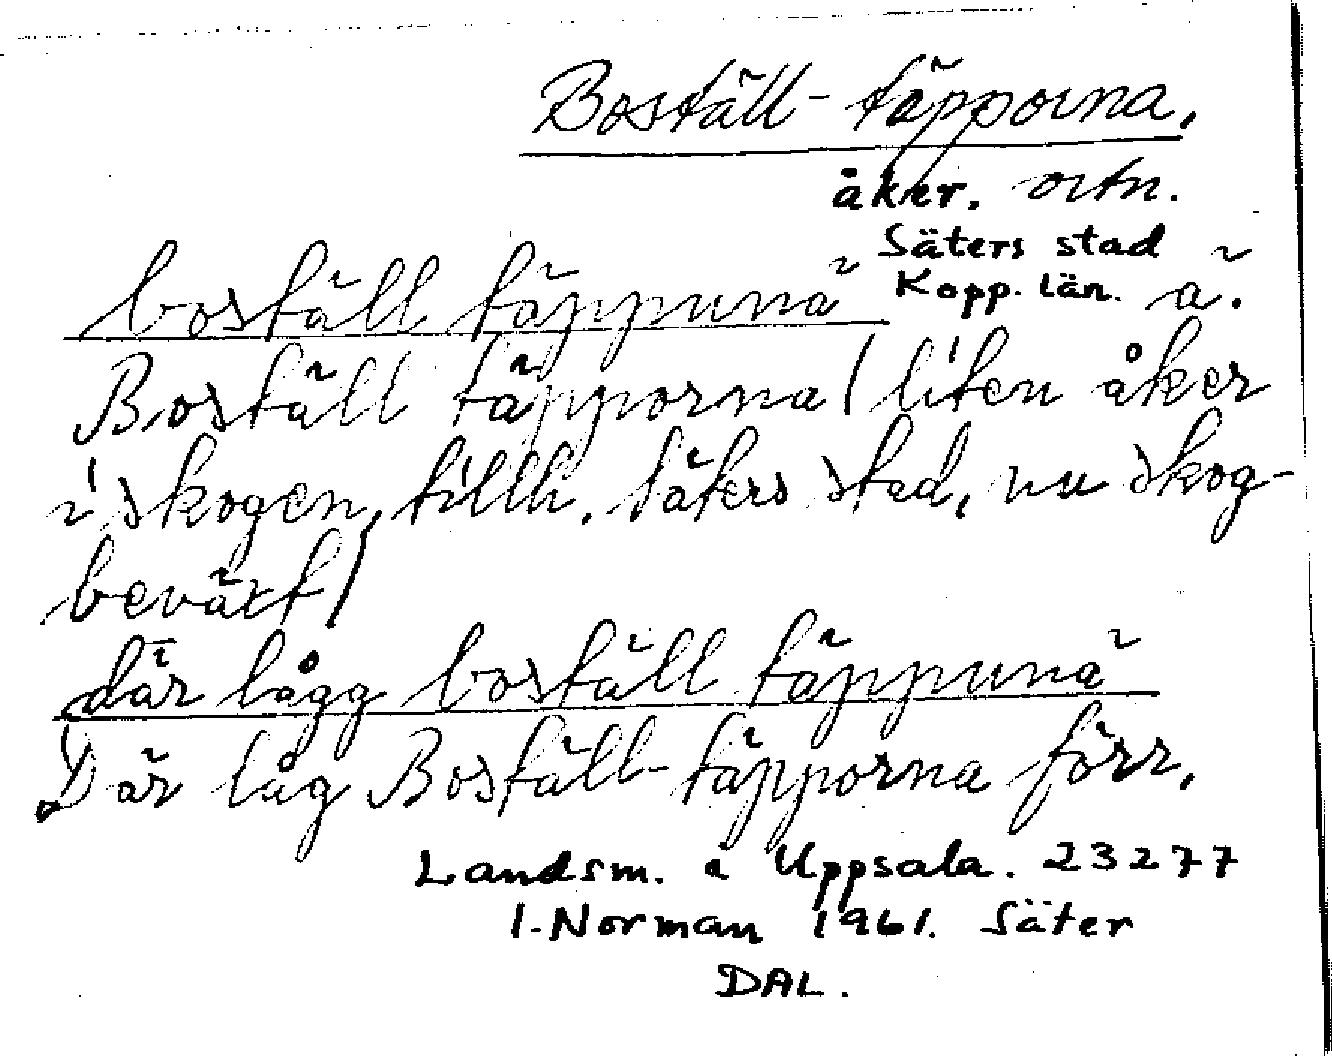 Boställ-täpporna.
åker. ortn.
Säters stad
Kopp. län. ä.
boställ täppunä
Boställ täpporna / liten åker
i skogen, tillh. Säters stad, nu skog-
beväxt /
där lågg boställ täppunä
Där låg Boställ-täpporna förr.
Landsm. a Uppsala. 23277
I. Norman 1961. Säter
DAL.